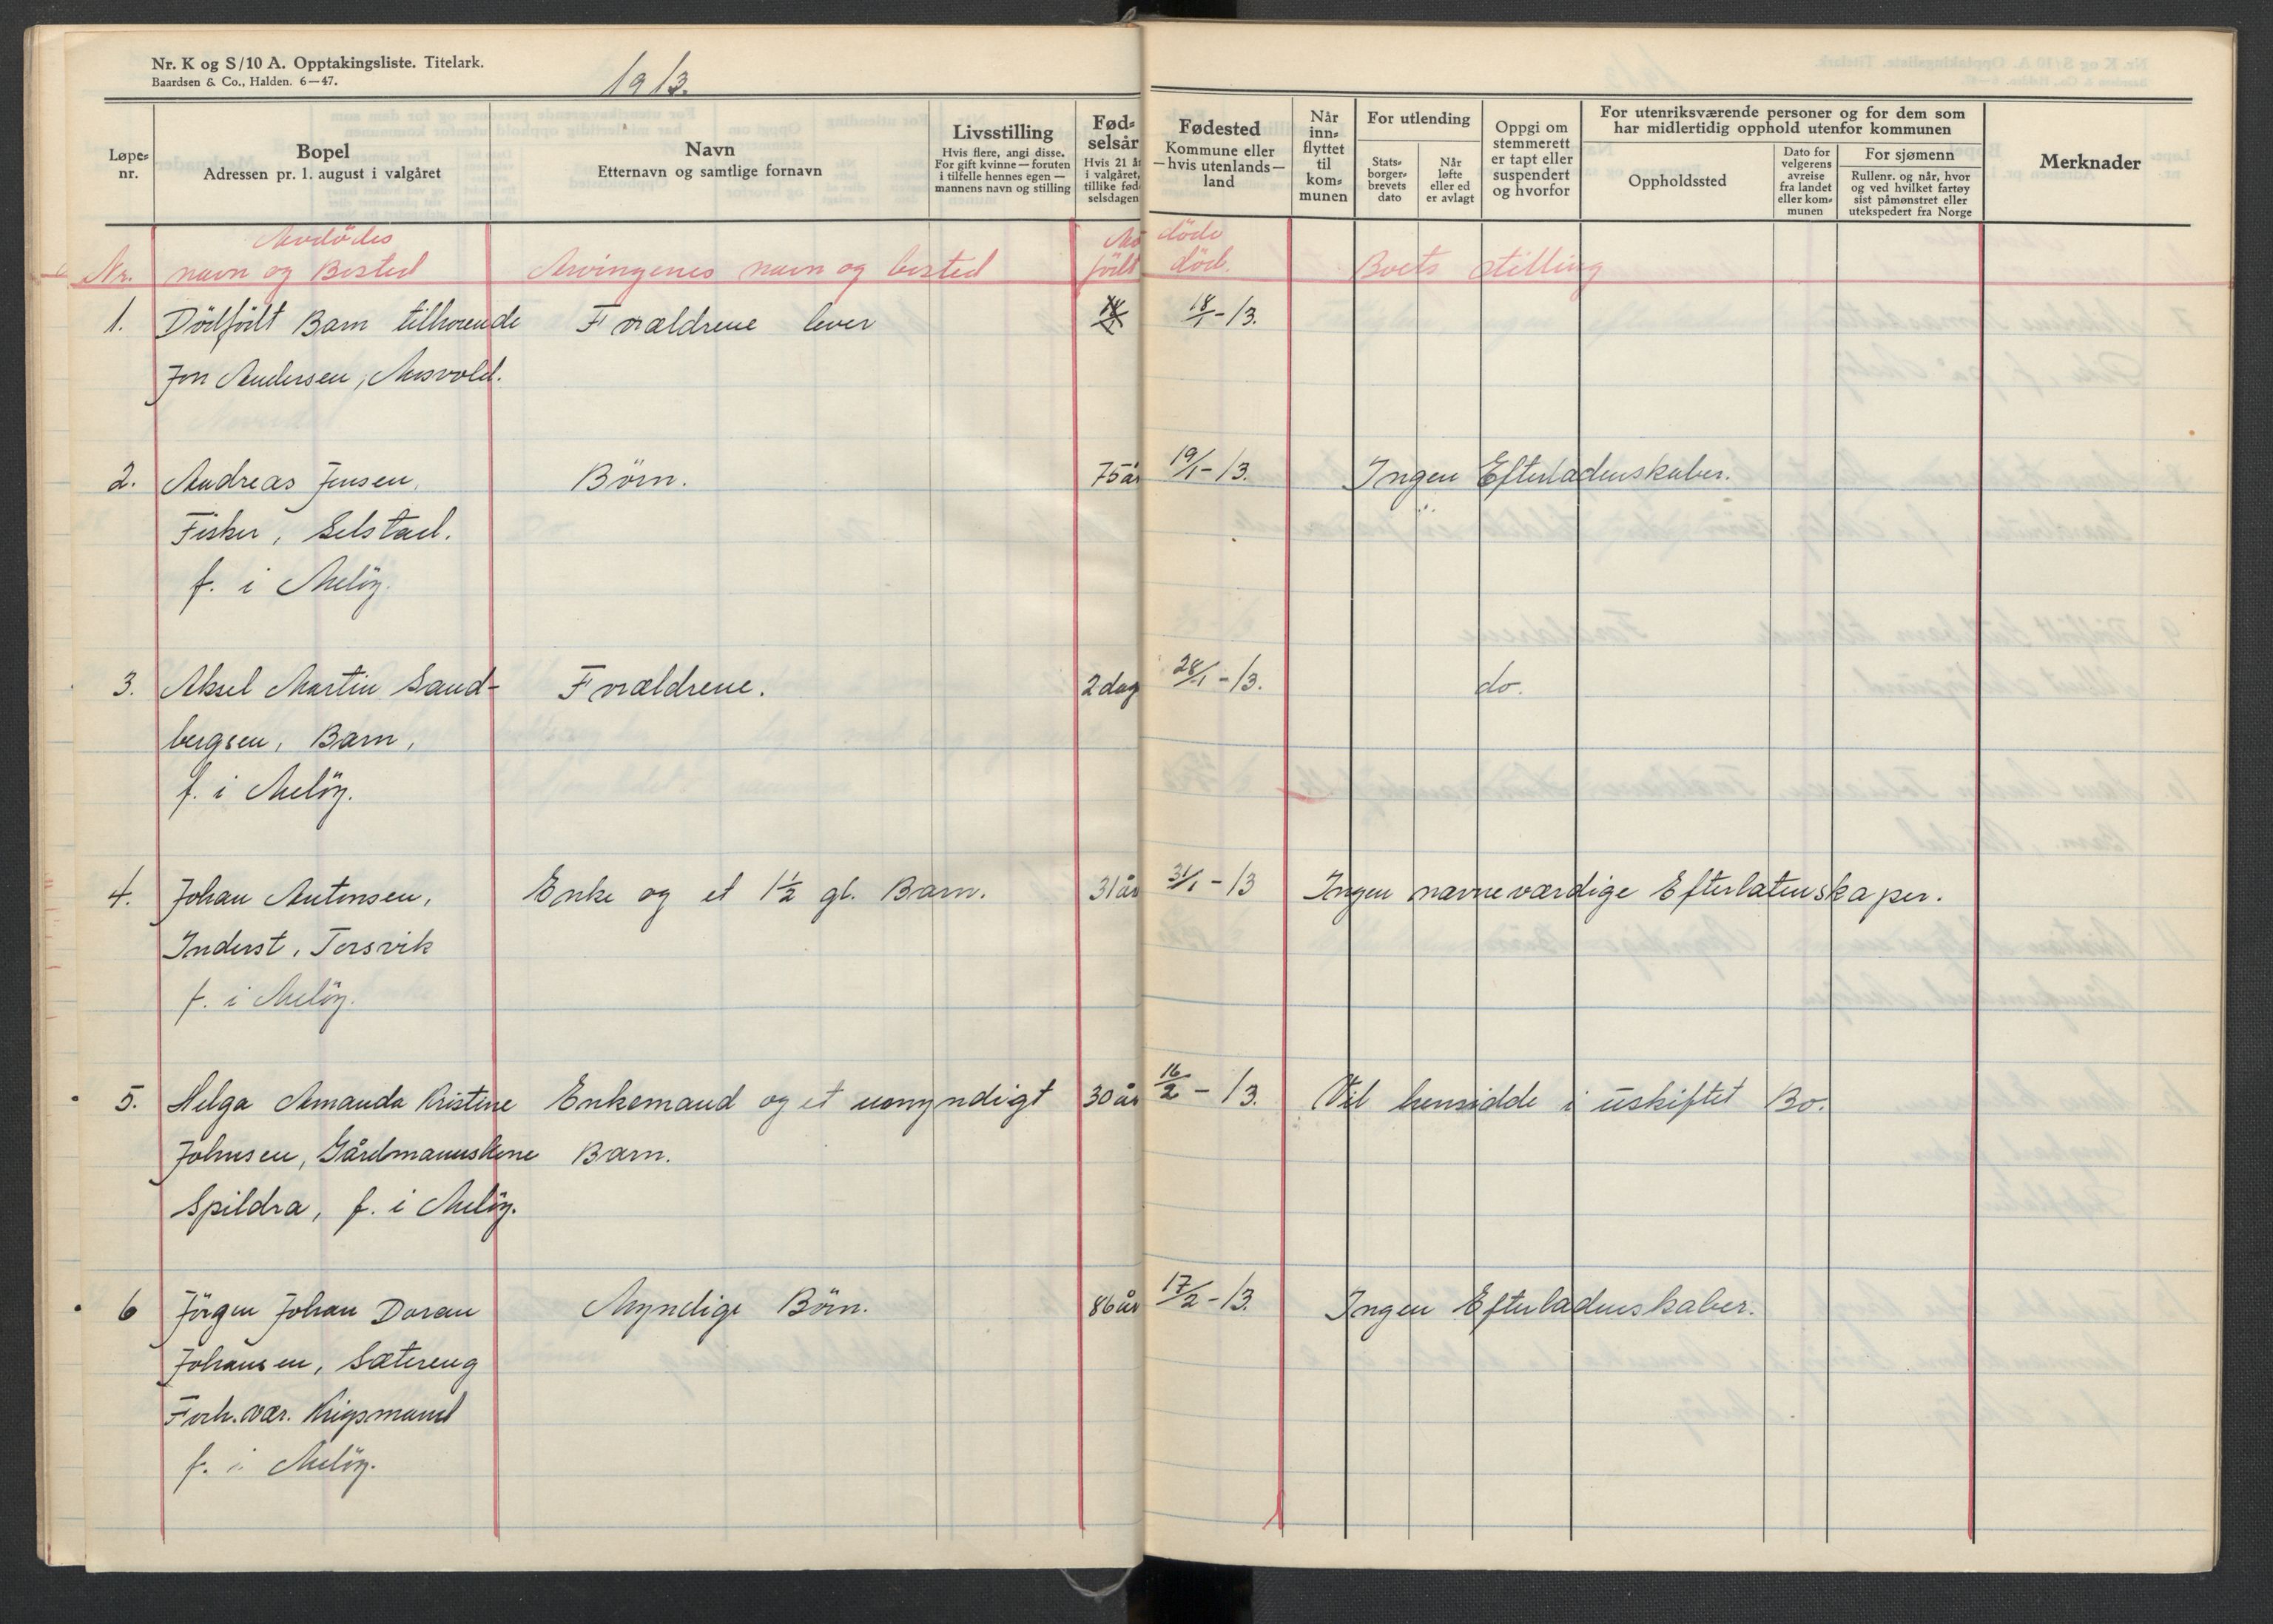 Nr. K og S/10 A. Opptakingsliste. Titelark.
Baardsen & Co., Halden. 6—47.
1913.
Løpe-
nr.
Bopel
Adressen pr. 1. august i valgåret
Navn
Etternavn og samtlige fornavn
Livsstilling
Hvis flere, angi disse.
For gift kvinne — foruten
i tilfelle hennes egen —
mannens navn og stilling
Fød-
selsår
Hvis 21 år
i valgåret,
tillike fød-
selsdagen
Fødested
Kommune eller
—hvis utenlands—
land
Når
inn-
flyttet
til
kom-
munen
For utlending
Stats-
borger-
brevets
dato
Når
løfte
eller ed
er avlagt
Oppgi om
stemmerett
er tapt eller
suspendert
og hvorfor
For utenriksværende personer og for dem som
har midlertidig opphold utenfor kommunen
Oppholdssted
Dato for
velgerens
avreise
fra landet
eller kom-
munen
For sjømenn
Rullenr. og når, hvor
og ved hvilket fartøy
sist påmønstret eller
utekspedert fra Norge
Merknader
Avdødes
Nr. navn og Bosted Arvingenes navn og bosted født død. Boets stilling
1. Dödfödt Barn tilhörende Forældrene lever 18/1-13.
Jon Andersen, Mosvold.
2. Andreas Jensen, Börn. 75 år 19/1-13. Ingen Efterladenskaber.
Fisker, Selstad.
f. i Melöy.
3. Aksel Martin Sand- Forældrene. 2 dag 28/1-13. do.
bergsen, Barn,
f. i Melöy.
4. Johan Antonsen, Enke og et 1½ gl. Barn. 31 år 31/1-13 Ingen nævneværdige Efterlatenskaper.
Inderst, Torsvik
f. i Melöy.
5. Helga Amanda Kristine Enkemand og et umyndigt 30 år 16/2-13. Vil hensidde i uskiftet Bo.
Johnsen, Gårdmannskone Barn.
Spildra, f. i Melöy.
6 Jörgen Johan Doran Myndige Börn. 86 år 17/2-13. Ingen Efterladenskaber.
Johansen, Sætereng
Forh.vær. Krigsmand
f. i Melöy.